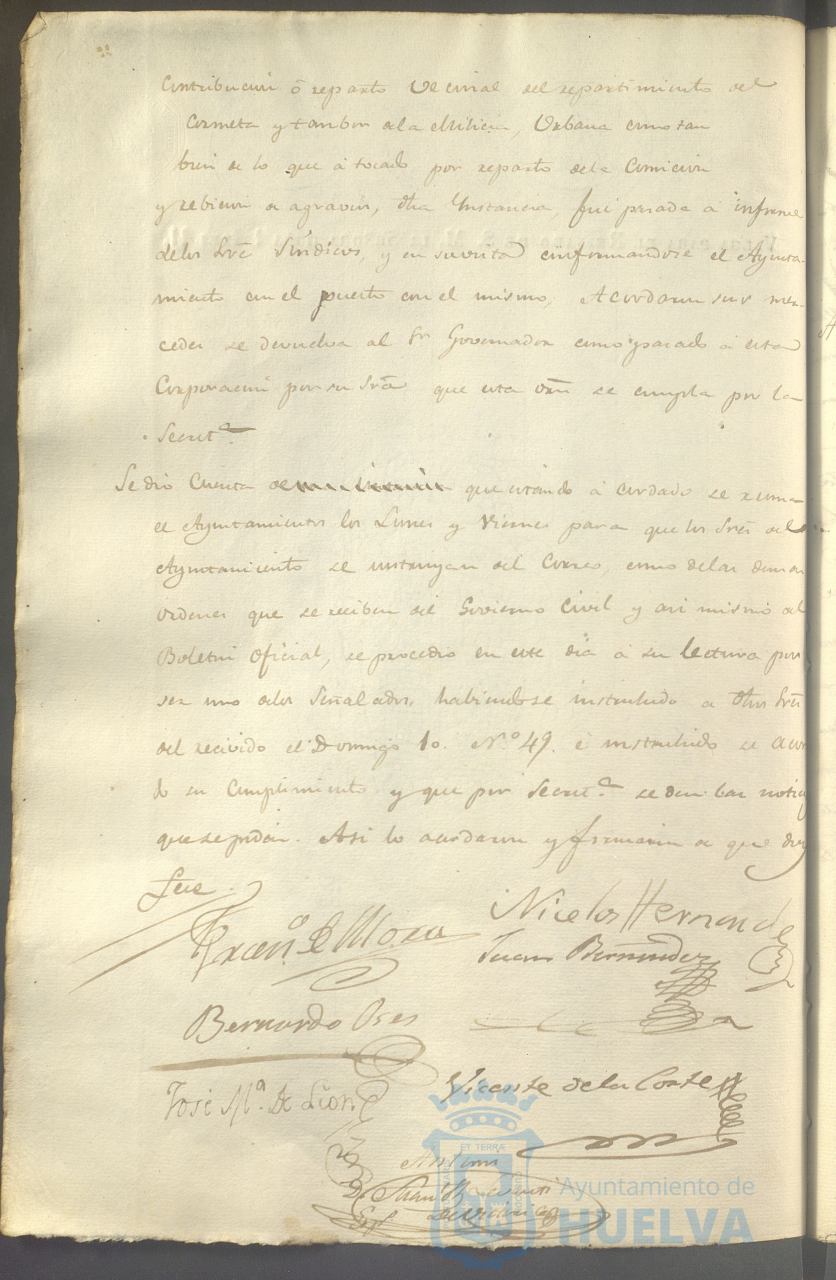 Contribucion ó reparto Vecinal del repartimiento del
Corneta y tambor dela Milicia, Urbana como tan
bien de lo que á tocado por reparto dela Comicion
y rebicion de agravios, dha Ynstancia, fué pasada a informe
delos Sres Sindicos, y en su vista conformandose el Ayunta-
miento con el puesto con el mismo, Acordaron sus mer-
cedes se devuelva al Sr Governador como pasado á esta
Corporacion por su Sria que esta orn se cumpla por la
Secretª
Se dió Cuenta de que estando á cordado se reuna
el Ayuntamientos los Lunes y Viernes para que los Sres del
Ayuntamiento se instruyan del Correo, como delas demas
ordenes que se reciben del Govierno Civil y asi mismo del
Boletin Oficial, se procedió en este dia á su lectura por
ser uno delos Señalados, habiendose instruhido a dhos Sres
del recivido el Domingo 1o. Nº 49. é instruhido se acor
do su Cumplimiento y que por Secretª se den las notici
que se pidan. Asi lo acordaron y firmaron de que doy
fee.
Francº de Mora
Nicolas Hernandez
Juan Bermudez
Bernardo Oses
José Mª. De Leon
Vicente de la Corte
Antemi
Juan
Ayuntamiento de
HUELVA